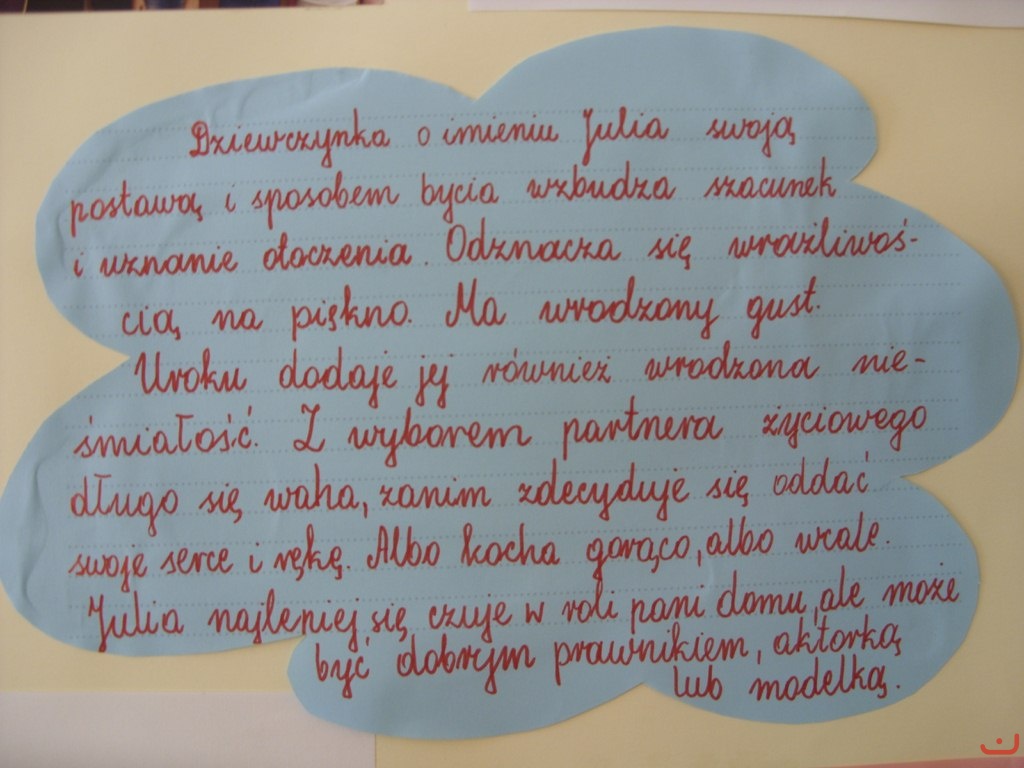 Dziewczynka o imieniu Julia swoją
postawą i sposobem bycia wzbudza szacunek
i uznanie otoczenia. Odznacza się wrażliwoś-
cią na piękno. Ma wrodzony gust.
Uroku dodaje jej również wrodzona nie-
śmiałość. Z wyborem partnera życiowego
długo się waha, zanim zdecyduje się oddać
swoje serce i rękę. Albo kocha gorąco, albo wcale.
Julia najlepiej się czuje w roli pani domu, ale może
być dobrym prawnikiem, aktorką
lub modelką.